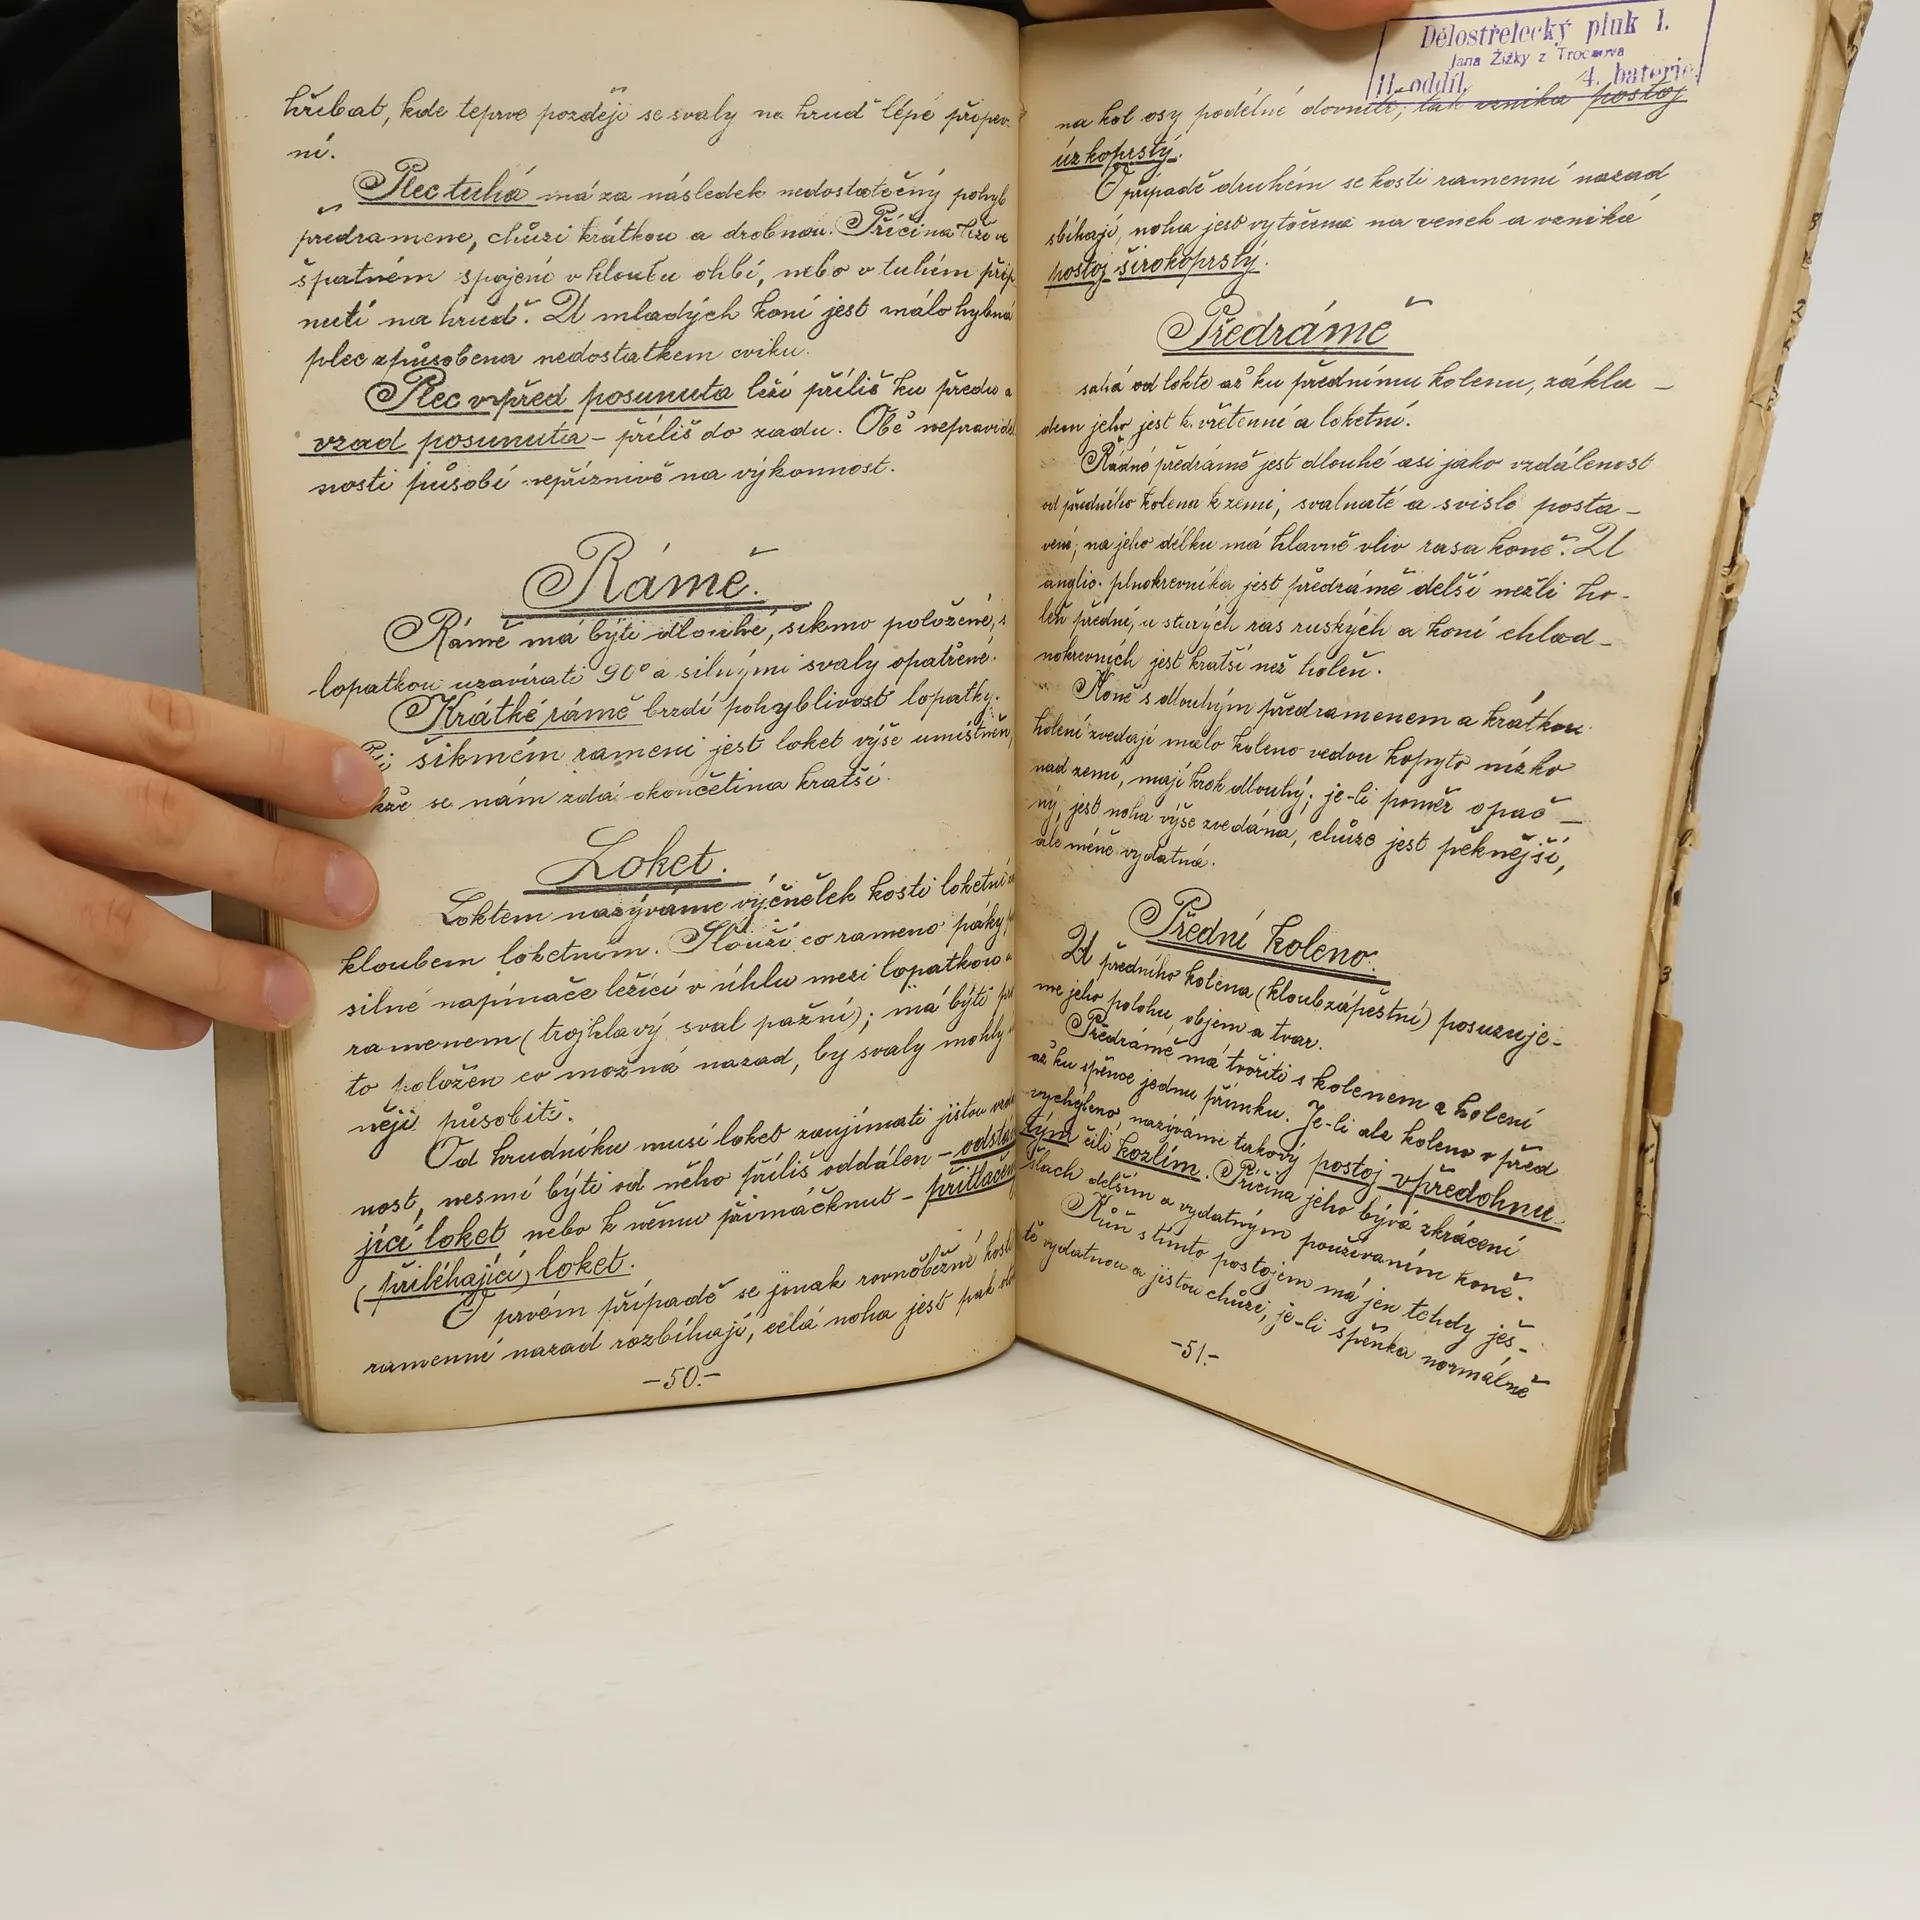 hříbat, kde teprve později se svaly na hruď lépe připev-
ní.
Plec tuhá má za následek nedostatečný pohyb
předramene, chůzi krátkou a drobnou. Příčina leží ve
špatném spojení v kloubu ohbí, nebo v tuhém přip
nutí na hruď. U mladých koní jest málo hybná
plec způsobena nedostatkem cviku.
Plec vpřed posunuta leží příliš ku předu a
vzad posunuta - příliš do zadu. Obě nepravidel
nosti působí nepříznivě na výkonnost.
Rámě.
Rámě má býti dlouhé, šikmo položené, s
lopatkou uzavírati 90° a silnými svaly opatřené.
Krátké rámě brzdí pohyblivost lopatky.
Při šikmém rameni jest loket výše umístněn,
kže se nám zdá okončetina kratší.
Loket.
Loktem nazýváme výčnělek kosti loketní
kloubem loketním. Slouží co rameno páky
silné napínače ležící v úhlu mezi lopatkou a
ramenem (trojhlavý sval pažní); má býti
to položen co možná nazad, by svaly mohly
něji působiti.
Od hrudníku musí loket zaujímati jistou vzdá
nost, nesmí býti od něho příliš oddálen - odstá
jící loket nebo k němu přimáčknut - přitlačen
(přiléhající) loket.
V prvém případě se jinak rovnoběžné kosti
ramenní nazad rozbíhají, celá noha jest pak
-50.-
Dělostřelecký pluk 1.
Jana Žižky z Trocnova
II. oddíl. 4. baterie.
na kol osy podélné dovnitř, tak vzniká postoj
úzkoprstý.
V případě druhém se kosti ramenní nazad
sbíhají, noha jest vytočena na venek a vzniká
postoj širokoprstý.
Předrámě
sahá od lokte až ku přednímu kolenu, zákla-
dem jeho jest k. vřetenní a loketní.
Řádné předrámě jest dlouhé asi jako vzdálenost
od předního kolena k zemi, svalnaté a svisle posta-
vení; na jeho délku má hlavně vliv rasa koně. U
anglic. plnokrevníka jest předrámě delší nežli ho-
leň přední, u starých ras ruských a koní chlad-
nokrevných jest kratší než holeň.
Koně s dlouhým předramenem a krátkou
holení zvedají málo koleno vedou kopyto nízko
nad zemí, mají krok dlouhý; je-li poměr opač-
ný, jest noha výše zvedána, chůze jest pěknější,
ale méně vydatná.
Přední koleno.
U předního kolena (kloub zápěstní) posuzuje-
me jeho polohu, objem a tvar.
Předrámě má tvořiti s kolenem a holení
až ku spěnce jednu přímku. Je-li ale koleno v před
vychýleno, nazýváme takový postoj vpředohnu-
tým čili kozlím. Příčina jeho bývá zkrácení
šlach delším a vydatným používáním koně.
Kůň s tímto postojem má jen tehdy ješ-
tě vydatnou a jistou chůzi, je-li spěnka normálně
-51.-